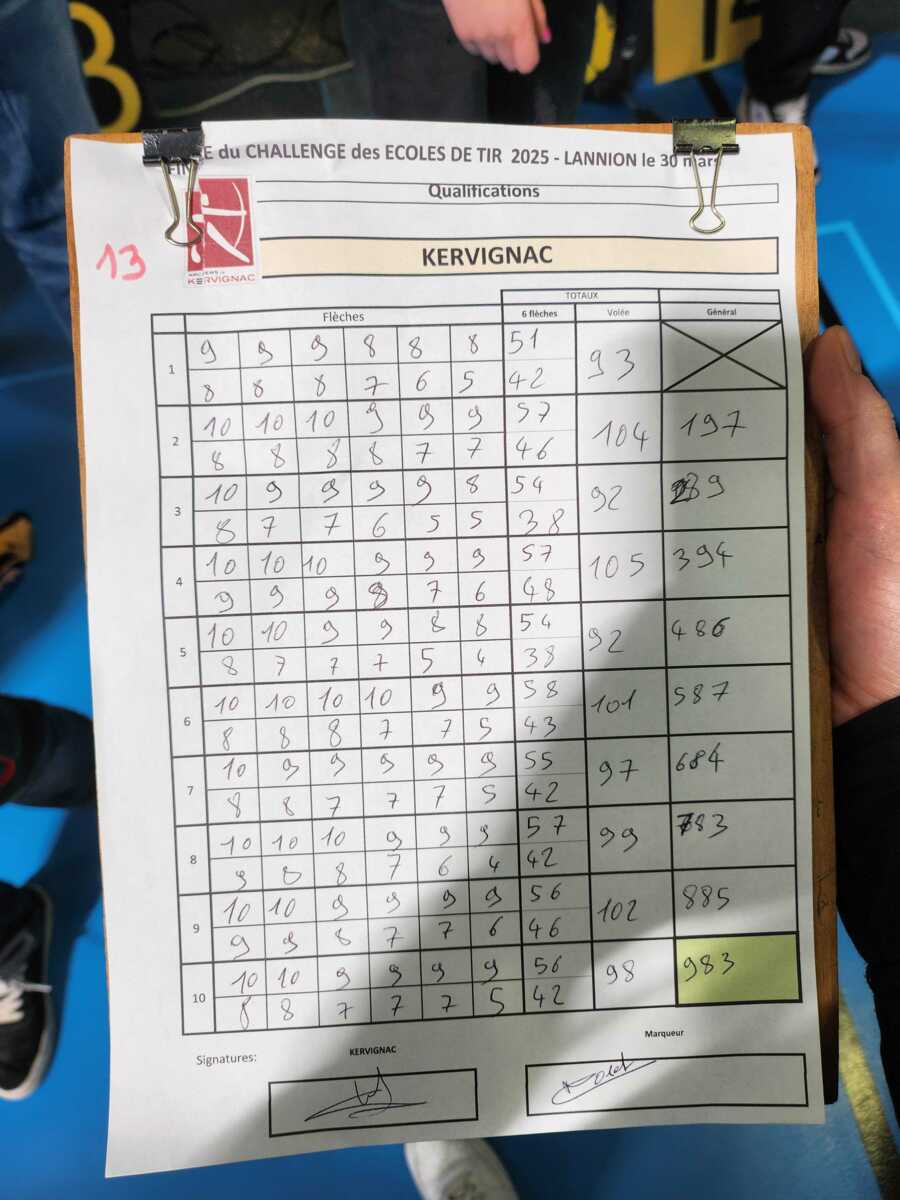 FIN E du CHALLENGE des ECOLES DE TIR 2025 - LANNION le 30 mars
Qualifications
13
KERVIGNAC
KERVIGNAC
TOTAUX
Flèches 6 flèches Volée Général
1 9 9 9 8 8 8 51 93
8 8 8 7 6 5 42
2 10 10 10 9 9 9 57 104 197
8 8 8 8 7 7 46
3 10 9 9 9 9 8 54 92 289
8 7 7 6 5 5 38
4 10 10 10 9 9 9 57 105 394
9 9 9 8 7 6 48
5 10 10 9 9 8 8 54 92 486
8 7 7 7 5 4 38
6 10 10 10 10 9 9 58 101 587
8 8 8 7 7 5 43
7 10 9 9 9 9 9 55 97 684
8 8 7 7 7 5 42
8 10 10 10 9 9 9 57 99 783
9 8 8 7 6 4 42
9 10 10 9 9 9 9 56 102 885
9 9 8 7 7 6 46
10 10 10 9 9 9 9 56 98 983
8 8 7 7 7 5 42
Signatures: KERVIGNAC Marqueur